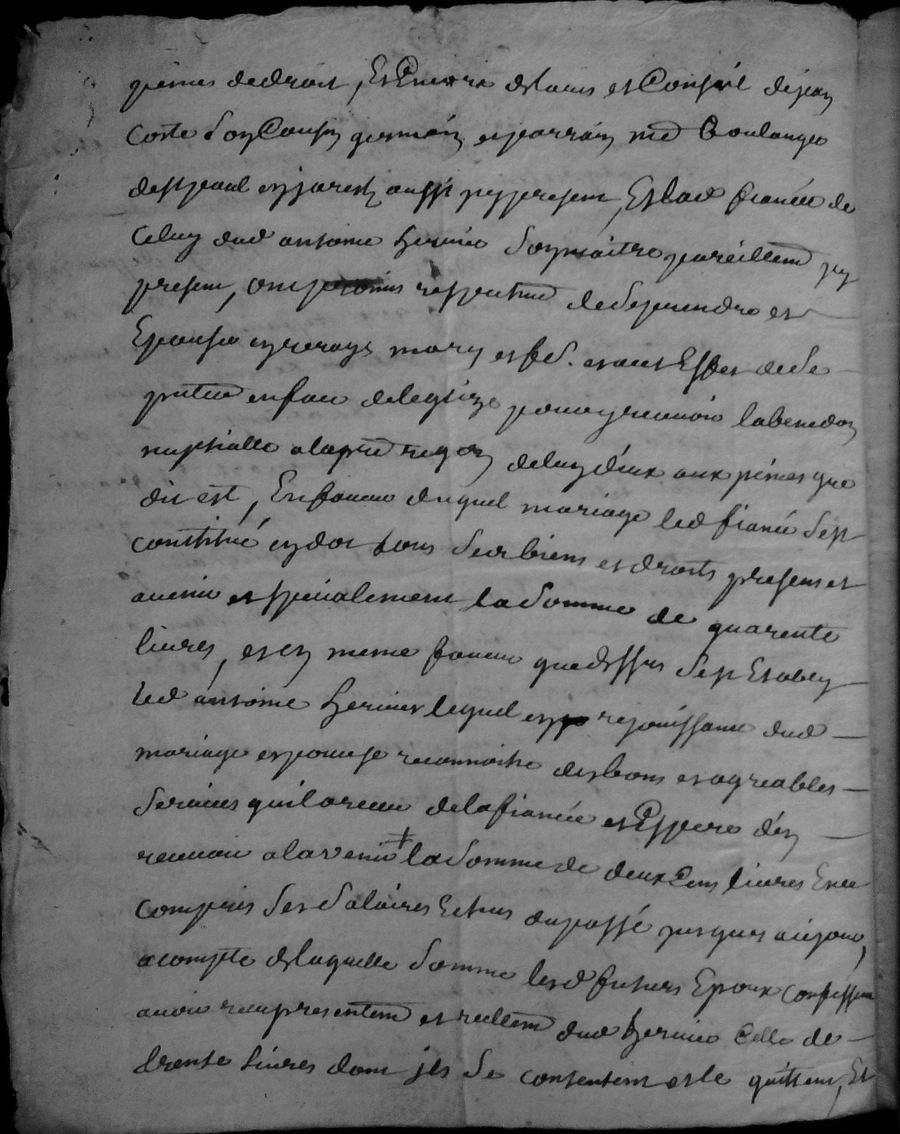 peines de droit, Et Encore de l'avis et Conseil de jean
Coste son Cousin germain et parrain md Boulanger
de st paul en jarest aussi icy present, Et lad fiancée de
Celuy dud antoine hervier son maitre pareillemt icy
present, ont promis respectivemt de se prendre et
Epouser en vrays mary et fe. et a cet Effet de se
pnter en face de leglize pour y recevoir la benedon
nuptialle a la pre reqon de luy d'eux aux peines que
dit est, En faveur duquel mariage led fiancé s'est
constitué en dot tous ses biens et droits presens et
avenir et specialement la somme de quarente
livres, et en meme faveur que dessus s'est Etably
led antoine hervier lequel en rejouissance dud
mariage et pour se reconnoitre des bons et agreables
services quil a receu de la fiancée et Espere d'en
recevoir a lavenir + la somme de deux Cens livres En ce
Compris ses salaires Echus du passé jusques aujourd,
acompte de laquelle somme lesd futurs Epoux Confessent
avoir receu presentemt et reellemt dud hervier Celle de
trente livres dont ils se contentent et le quittent, Et